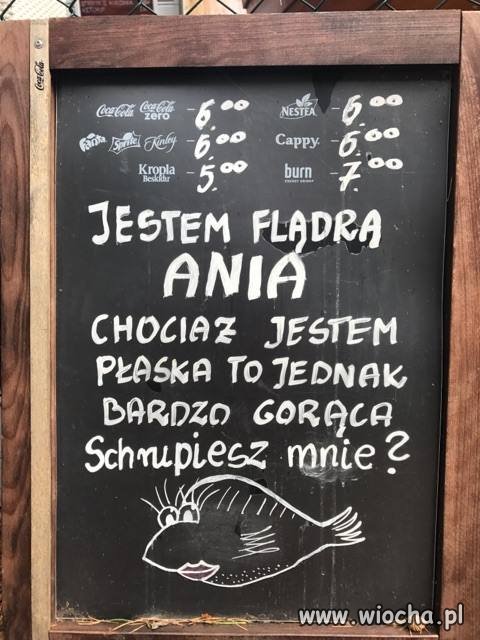 Coca-Cola
Coca-Cola Coca-Cola zero - 6.00 NESTEA - 6.00
Fanta Sprite Kinley - 6.00 Cappy. - 6.00
Kropla Beskidu - 5.00 burn ENERGY DRINK - 7.00
JESTEM FLĄDRA
ANIA
CHOCIAŻ JESTEM
PŁASKA TO JEDNAK
BARDZO GORĄCA
Schrupiesz mnie?
www.wiocha.pl